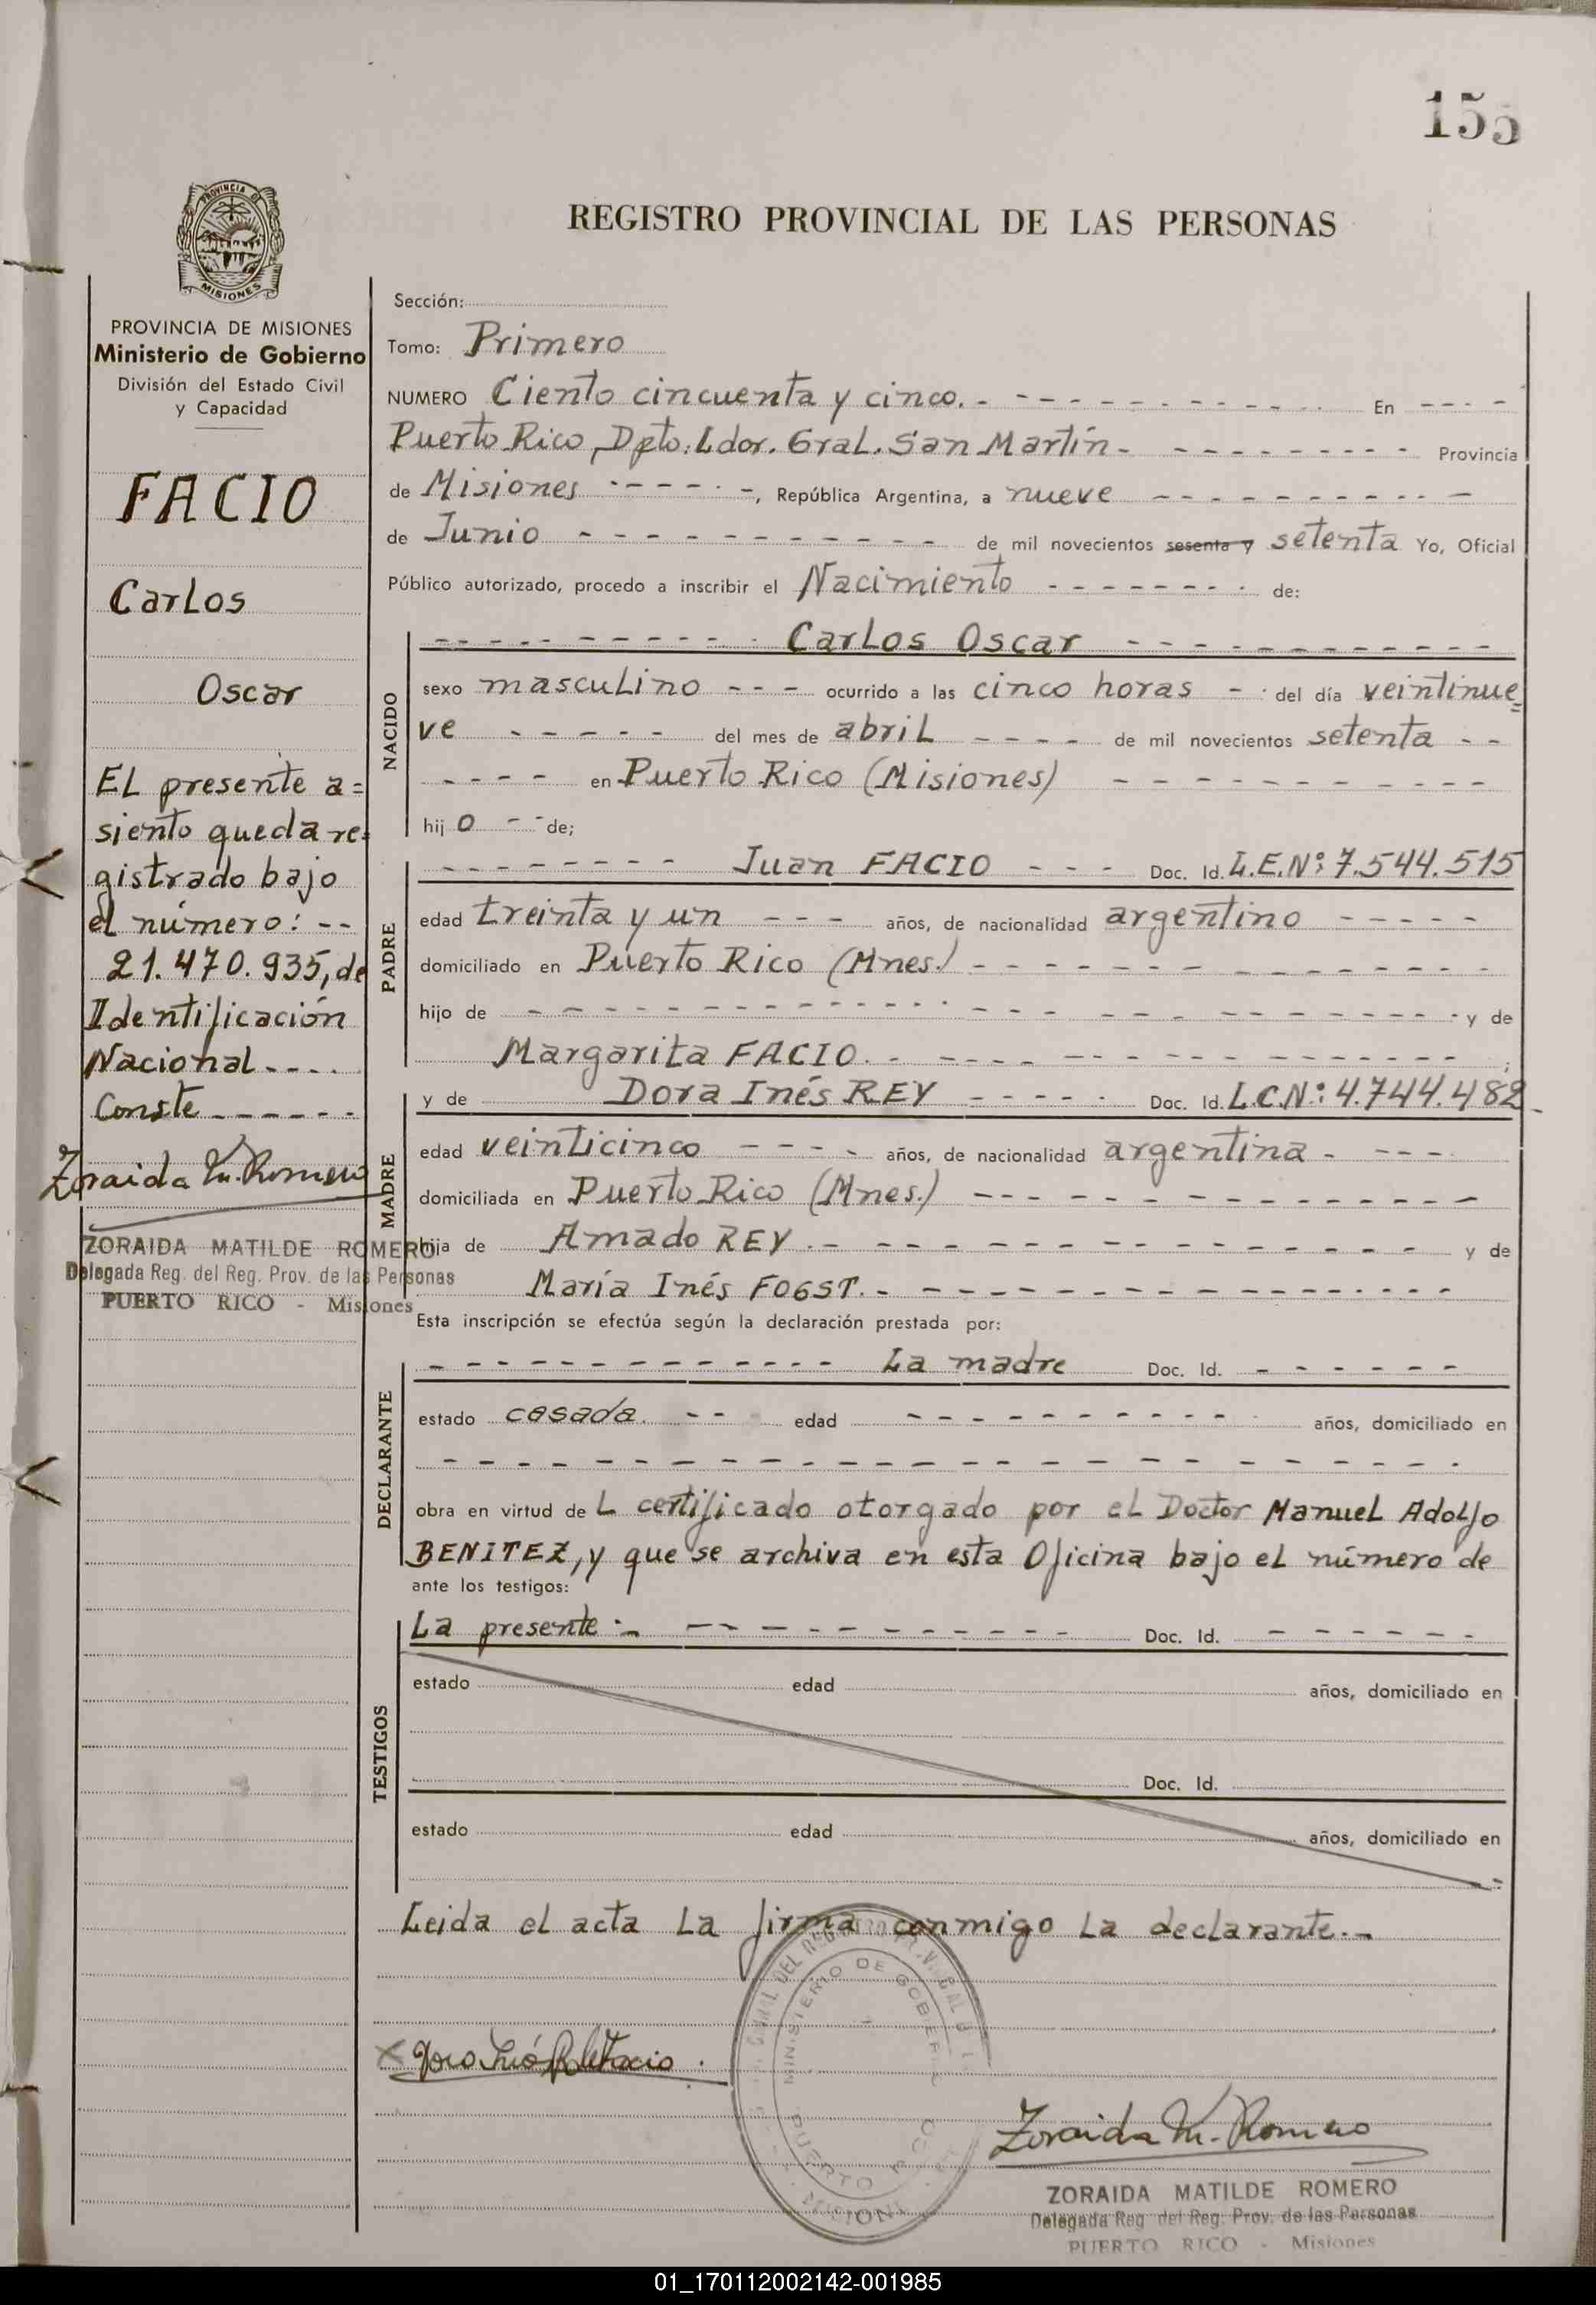 155
PROVINCIA DE
MISIONES
REGISTRO PROVINCIAL DE LAS PERSONAS
PROVINCIA DE MISIONES
Ministerio de Gobierno
División del Estado Civil
y Capacidad
FACIO
Carlos
Oscar
El presente a=
siento queda re=
gistrado bajo
el número: --
21.470.935, de
Identificación
Nacional----
Conste------
Zoraida M. Romero
ZORAIDA MATILDE ROMERO
Delegada Reg. del Reg. Prov. de las Personas
PUERTO RICO - Misiones
Sección:
Tomo: Primero
NUMERO Ciento cincuenta y cinco.- En
Puerto Rico, Dpto: Ldor. Gral. San Martín- Provincia
de Misiones, República Argentina, a nueve
de Junio de mil novecientos sesenta y setenta Yo, Oficial
Público autorizado, procedo a inscribir el Nacimiento de:
NACIDO
Carlos Oscar
sexo masculino ocurrido a las cinco horas del día veintinue=
ve del mes de abril de mil novecientos setenta
en Puerto Rico (Misiones)
hijo de;
PADRE
Juan FACIO Doc. Id. L.E.Nº: 7.544.515
edad treinta y un años, de nacionalidad argentino
domiciliado en Puerto Rico (Mnes.)
hijo de y de
Margarita FACIO.-
MADRE
y de Dora Inés REY Doc. Id. L.C.N: 4.744.482
edad veinticinco años, de nacionalidad argentina
domiciliada en Puerto Rico (Mnes.)
hija de Amado REY y de
María Inés FOGST.-
Esta inscripción se efectúa según la declaración prestada por:
DECLARANTE
La madre Doc. Id.
estado casada edad años, domiciliado en
obra en virtud de L certificado otorgado por el Doctor Manuel Adolfo
BENITEZ, y que se archiva en esta Oficina bajo el número de
ante los testigos:
TESTIGOS
La presente.- Doc. Id.
estado edad años, domiciliado en
Doc. Id.
estado edad años, domiciliado en
Leida el acta la firma conmigo la declarante.-
MINISTERIO DE GOBIERNO
PUERTO RICO
Zoraida M. Romero
ZORAIDA MATILDE ROMERO
Delegada Reg. del Reg. Prov. de las Personas
PUERTO RICO - Misiones
01_170112002142-001985